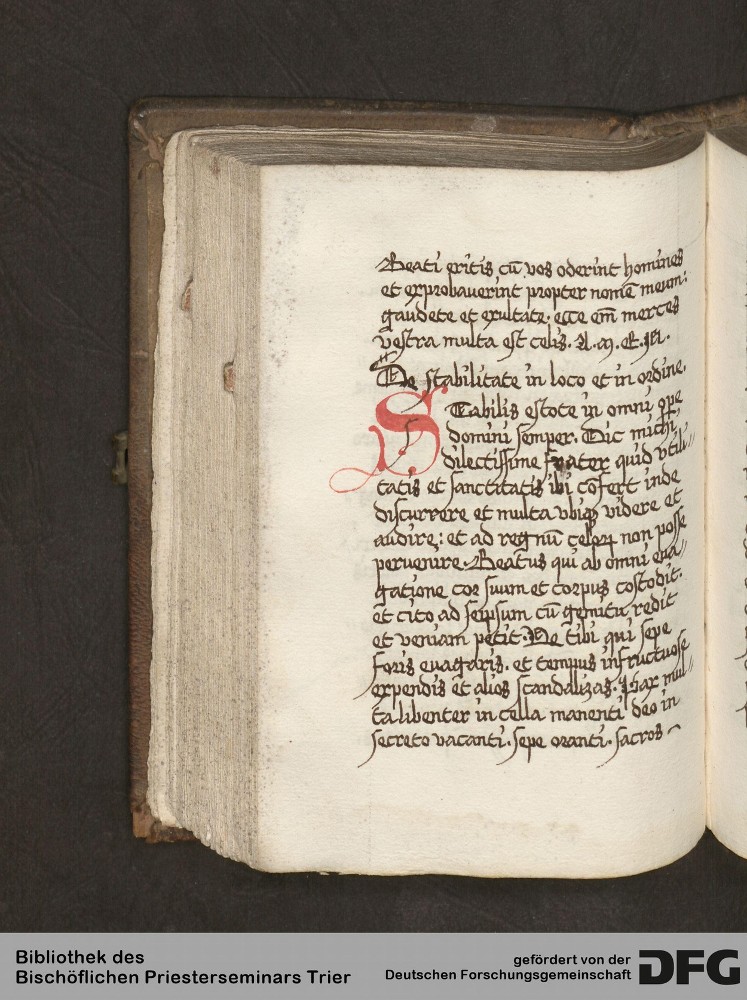 Beati eritis cū vos oderint homines
et exprobauerint propter nomē meum:
gaudete et exultate. ecce em̄ merces
vestra multa est celis. A. M. E. N.
De stabilitate in loco et in ordine.
STabilis estote in omni ope
domini semper. Dic michi
dilectissime frater quid vtili
tatis et sanctitatis ibi cōfert inde
discurrere et multa vbiqꝫ videre et
audire: et ad regnū celoꝝ non posse
pervenire. Beatus qui ab omni eua
gatione cor suum et corpus cōstodit.
et cito ad seipsum cū gemitu redit
et veniam petit. Ne tibi qui sepe
foris euagaris. et tempus infructuose
expendis et alios scandalizas. Pax mul
ta libenter in cella manenti deo in
secreto vacanti. sepe oranti. sacros
Bibliothek des
Bischöflichen Priesterseminars Trier
gefördert von der
Deutschen Forschungsgemeinschaft DFG